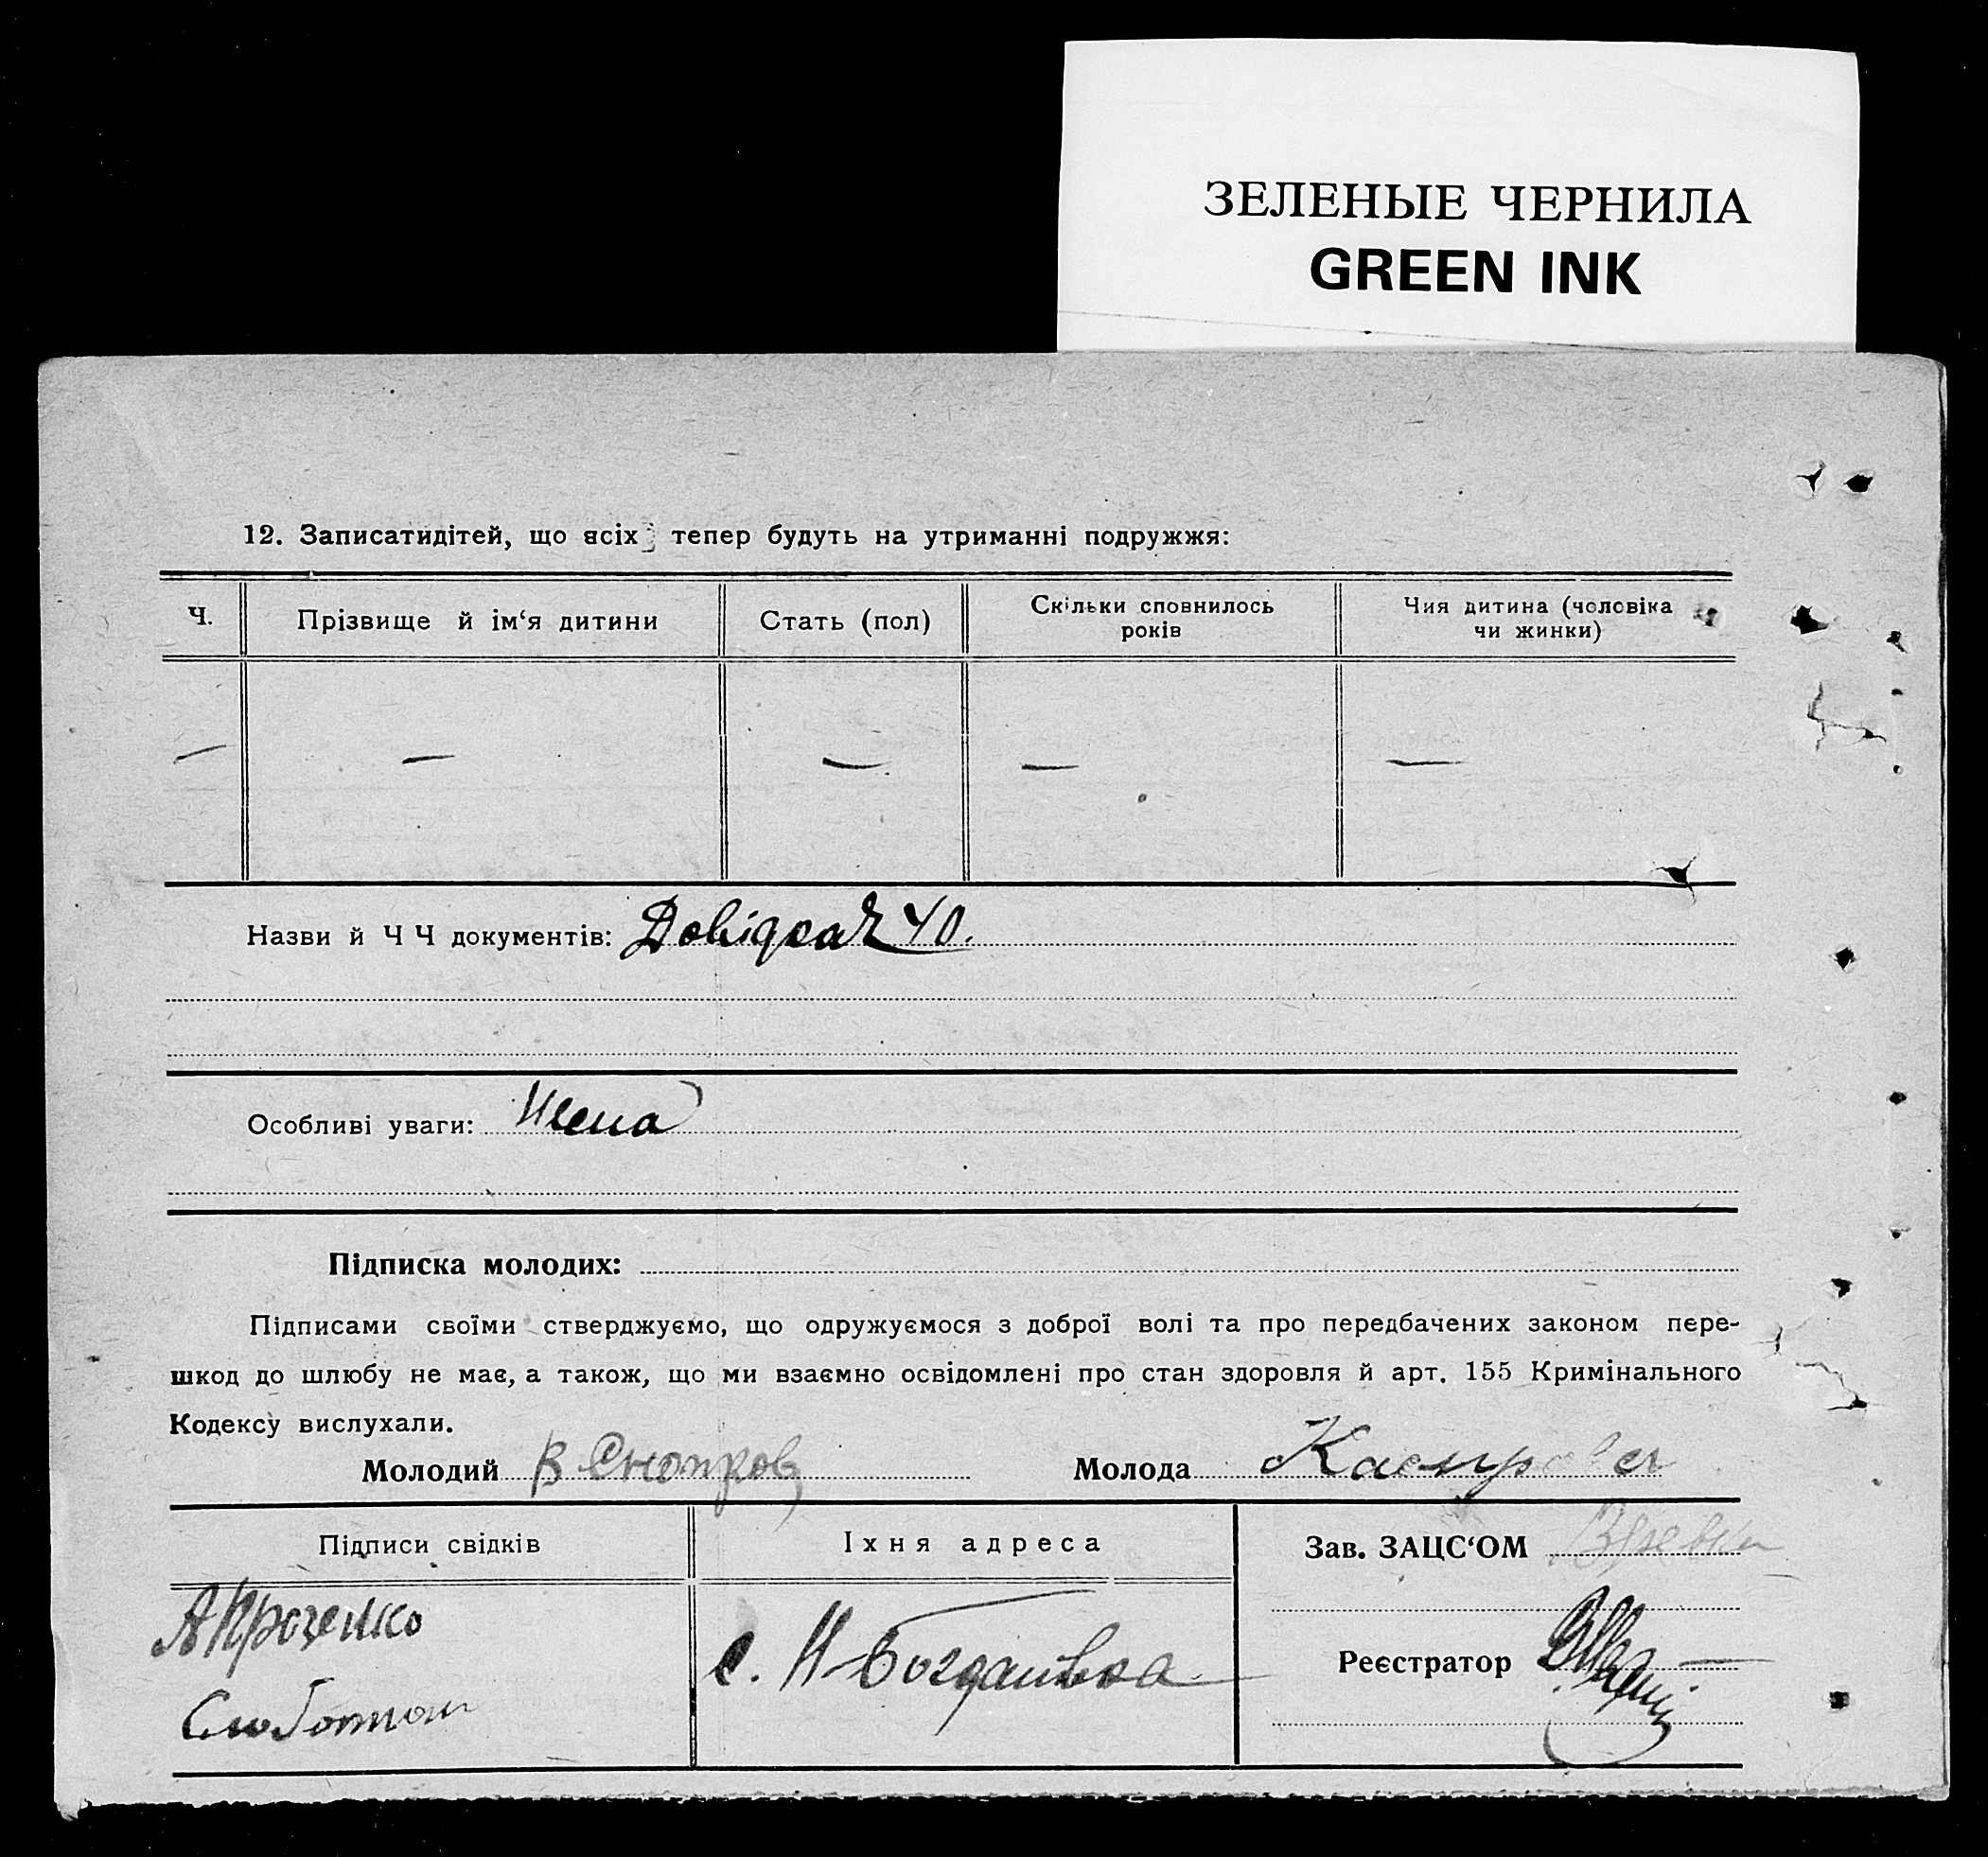 ЗЕЛЕНЫЕ ЧЕРНИЛА
GREEN INK
12. Записатидітей, що всіх тепер будуть на утриманні подружжя:
Ч.
Прізвище й ім‘я дитини
Стать (пол)
Скільки сповнилось
років
Чия дитина (чоловіка
чи жинки)
— — — — —
Назви й Ч Ч документів: 40.
Особливі уваги:
Підписка молодих:
Підписами своїми стверджуємо, що одружуємося з доброї волі та про передбачених законом пере-
шкод до шлюбу не має, а також, що ми взаємно освідомлені про стан здоровля й арт. 155 Кримінального
Кодексу вислухали.
Молодий
Молода
Підписи свідків
Іхня адреса
Зав. ЗАЦС‘ОМ
А Проценко
с. Н-Богданівка
Реєстратор